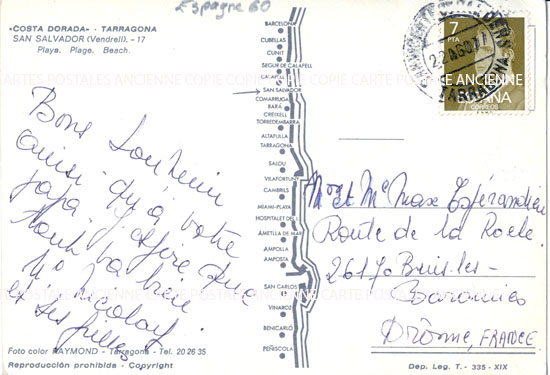 Espagne 60
«COSTA DORADA» - TARRAGONA
SAN SALVADOR (Vendrell). - 17
Playa. Plage. Beach.
BARCELONA
CUBELLAS
CUNIT
SEGUR DE CALAFELL
CALAFELL
SAN SALVADOR
COMARRUGA
BARÁ
CREIXELL
TORREDEMBARRA
ALTAFULLA
TARRAGONA
SALOU
VILAFORTUNY
CAMBRILS
MIAMI-PLAYA
HOSPITALET DEL I.
AMETLLA DE MAR
AMPOLLA
AMPOSTA
SAN CARLOS
VINAROZ
BENICARLÓ
PEÑISCOLA
7
PTA
ESPAÑA
CORREOS
TARRAGONA
CARTES POSTALES ANCIENNE COPIE CARTE POSTALES ANCIENNE
Bons Souvenir
ainsi qu'a votre
papa. J'espère que
tout va bien
Mº Nicolay
et ses filles
Mr et Me Max Espérandieu
Route de la Roche
26170 Buis-les-
Baronnies
Drôme, FRANCE
Foto color RAYMOND - Tarragona - Tel. 20 26 35
Reproducción prohibida - Copyright
Dep. Leg. T. - 335 - XIX